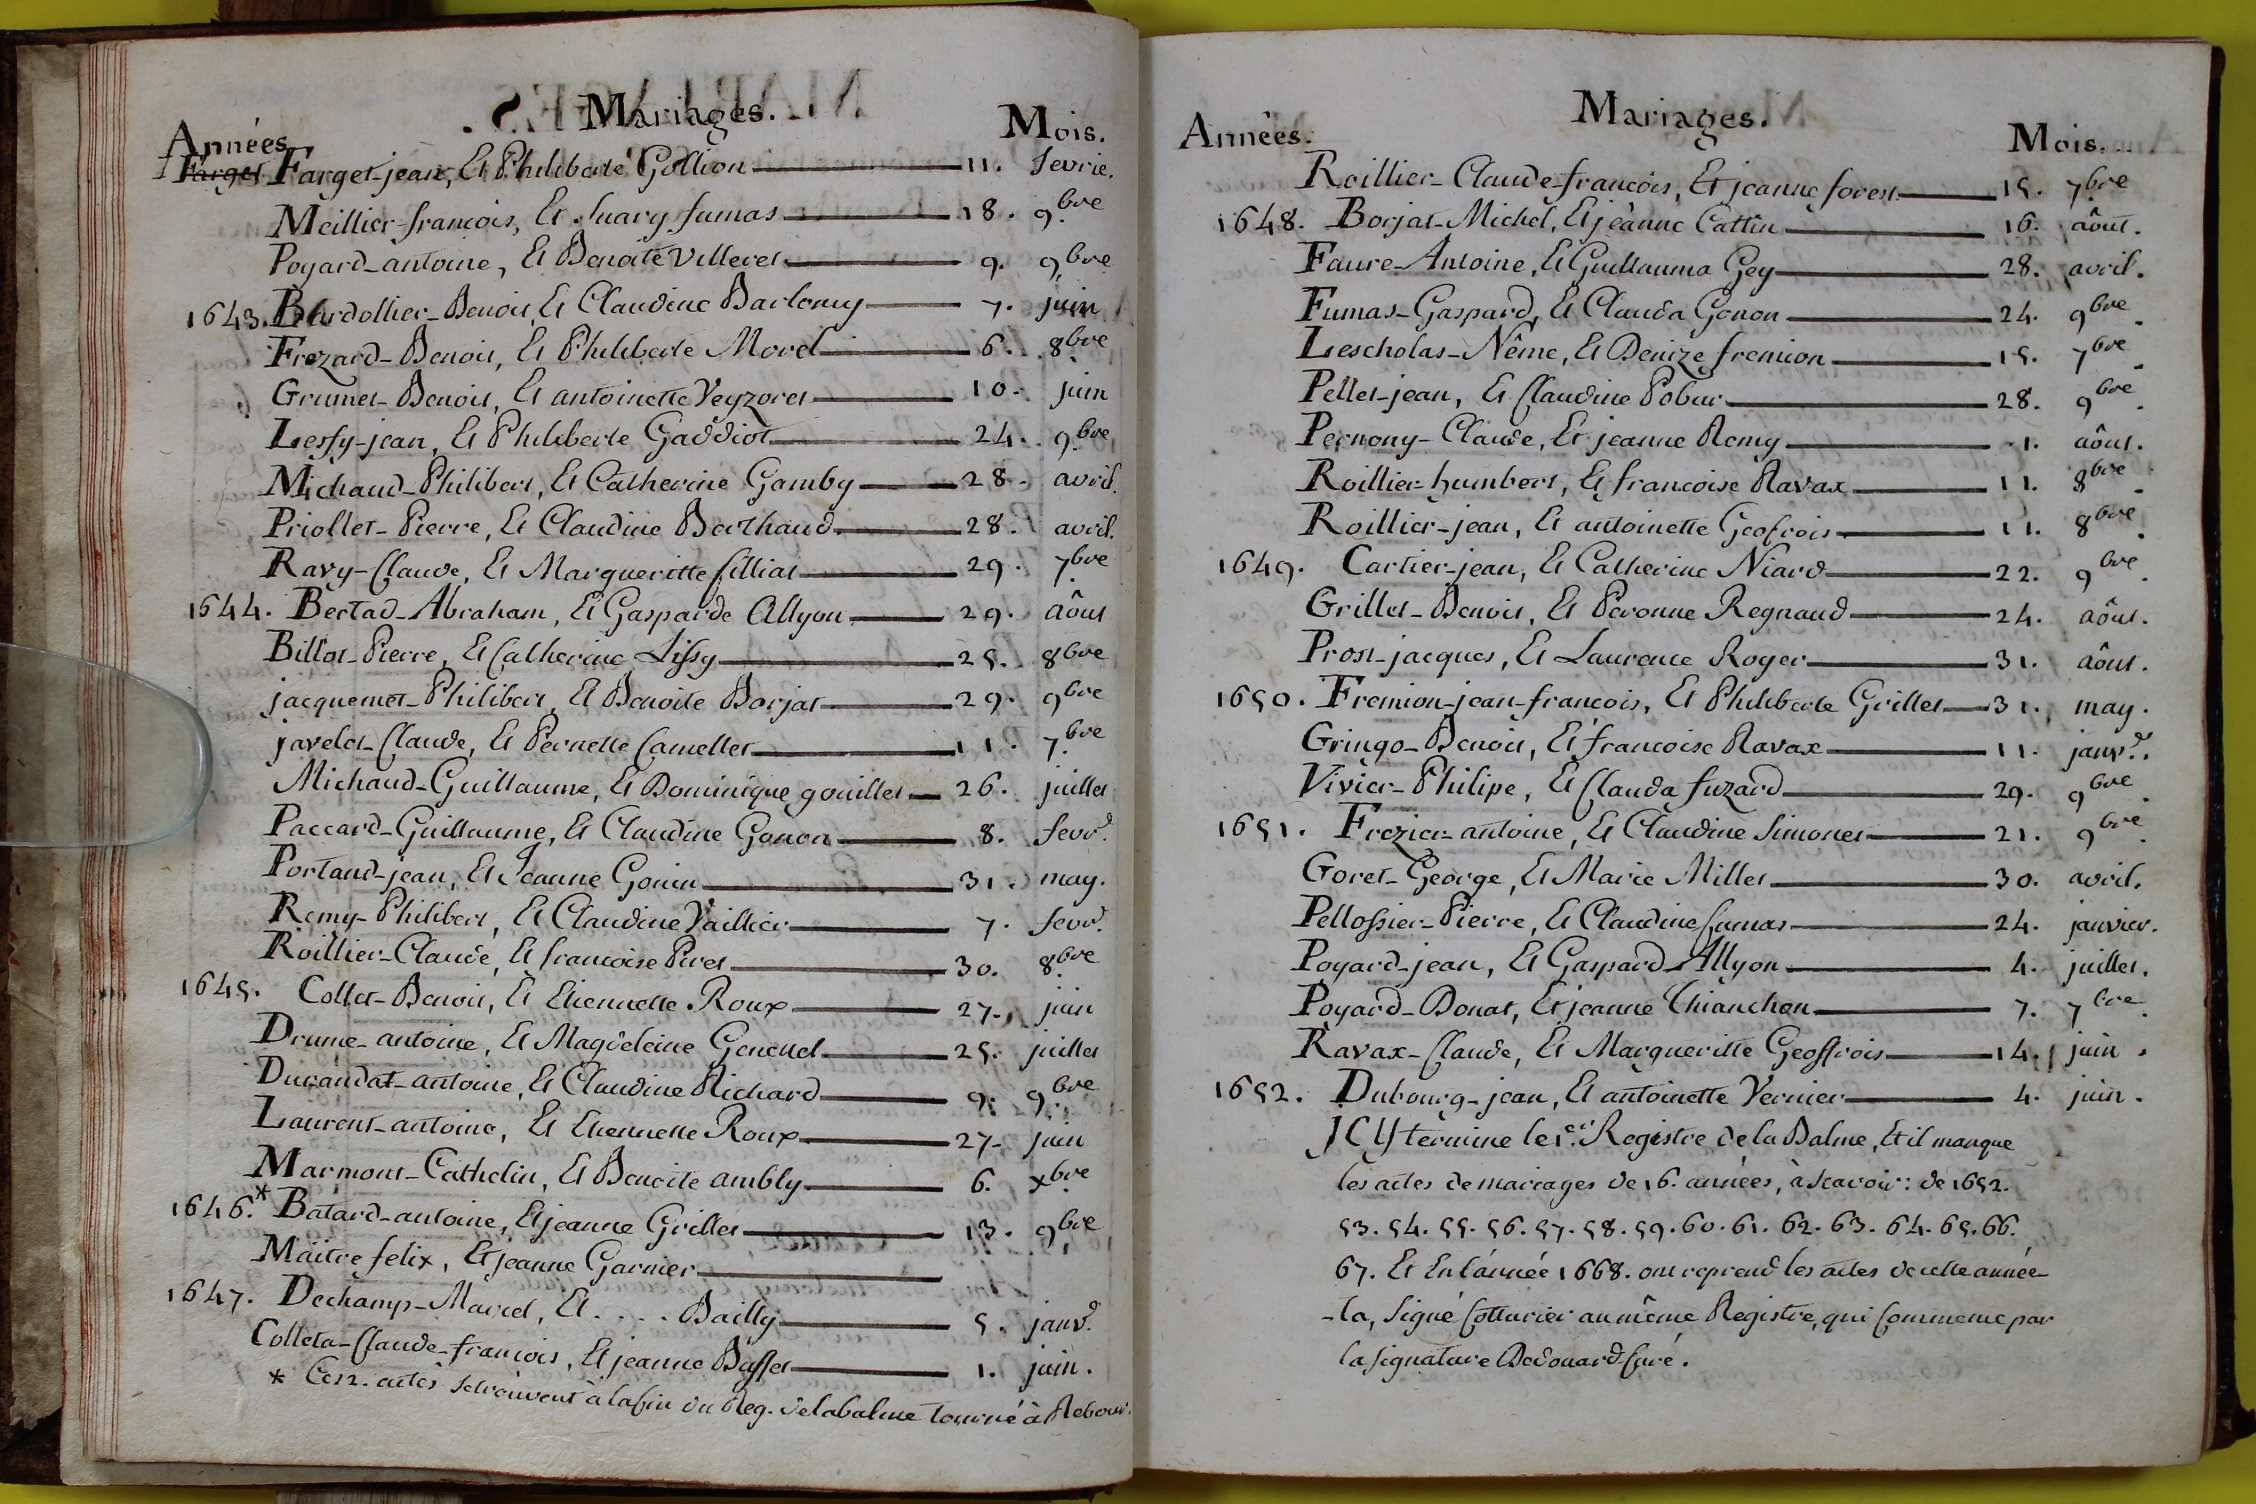 Mariages.
Années Mois.
Farget Farget-jean, Et Philiberte Gollion 11. fevrie.
Meillier-francois, Et fumas 18. 9.bre
Poyard-antoine, Et Benoite Villeret 9. 9.bre
1643. Burdollier-Benoit, Et Claudine Barlomy 7. juin
Frezard-Benoit, Et Philiberte Morel 6. 8bre
Grumet-Benoit, Et antoinette Veyzoret 10. juin
Lessy-jean, Et Philiberte Gaddiot 24. 9.bre
Michaud-Philibert, Et Catherine Gamby 28. avril.
Priollet-Pierre, Et Claudine Berthaud 28. avril.
Ravy-Claude, Et Margueritte filliat 29. 7bre
1644. Bertad-Abraham, Et Gasparde Allyon 29. Aôut
Billot-Pierre, Et Catherine Lissy 25. 8bre
jacquemet-Philibert, Et Benoite Borjat 29. 9bre
javelot-Claude, Et Pernette Camellet 11. 7.bre
Michaud-Guillaume, Et Dominique gouillet 26. juillet
Paccard-Guillaume, Et Claudine Gonon 8. fevr.
Portand-jean, Et Jeanne Gonin 31. may.
Remy-Philibert, Et Claudine Vaillier 7. fevr.
Roillier-Claude, Et francoise Piret 30. 8.bre
1645. Collet-Benoit, Et Etiennette Roux 27. juin
Drume-antoine, Et Magdeleine Genenel 25. juillet
Durandat-antoine, Et Claudine Richard 9. 9bre
Laurent-antoine, Et Etiennette Roux 27. juin
Marmont-Cathelin, Et Benoite ambly 6. xbre
1646.* Batard-antoine, Et jeanne Grillet 13. 9bre
Maitre felix, Et jeanne Garnier
1647. Dechamp-Marcel, Et . . . . Bailly 5. janv.
Colleta-Claude-francois, Et jeanne Bassel 1. juin.
* Ces 2. actes se trouvent à la fin du Reg. de la balme tourné à Rebour.
Mariages.
Années. Mois.
Roillier-Claude-francois, Et jeanne forest 15. 7bre
1648. Borjat-Michel, Et jeanne Cattin 16. aôut.
Faure-Antoine, Et Guillauma Gey 28. avril.
Fumas-Gaspard, Et Clauda Gonon 24. 9bre.
Lescholas-Nême, Et Denize fremion 15. 7bre.
Pellet-jean, Et Claudine Pobur 28. 9bre.
Pernony-Claude, Et jeanne Remy 1. aôut.
Roillier-humbert, Et francoise Ravax 11. 8bre.
Roillier-jean, Et antoinette Geofrois 11. 8bre.
1649. Cartier-jean, Et Catherine Niard 22. 9bre.
Grillet-Benoit, Et Peronne Regnaud 24. aôut.
Prost-jacques, Et Laurence Roger 31. aôut.
1650. Fremion-jean-francois, Et Philiberte Grillet 31. may.
Gringo-Benoit, Et francoise Ravax 11. janv.
Vivier-Philipe, Et Clauda fuzard 29. 9bre.
1651. Frezier-antoine, Et Claudine Simonet 21. 9bre.
Goret-George, Et Marie Millet 30. avril.
Pellossier-Pierre, Et Claudine fumas 24. janvier.
Poyard-jean, Et Gaspard-Allyon 4. juillet.
Poyard-Donat, Et jeanne Chianchon 7. 7bre.
Ravax-Claude, Et Margueritte Geoffrois 14. juin.
1652. Dubourg-jean, Et antoinette Vernier 4. juin.
ICY termine le 1er. Registre de la Balme, Et il manque
les actes de mariages de 16. années, à scavoir: de 1652.
53. 54. 55. 56. 57. 58. 59. 60. 61. 62. 63. 64. 65. 66.
67. Et En l'année 1668. on reprend les actes de cette année-
-la, signé Cotturier au même Registre, qui Commence par
la signature Dedouard-Curé.